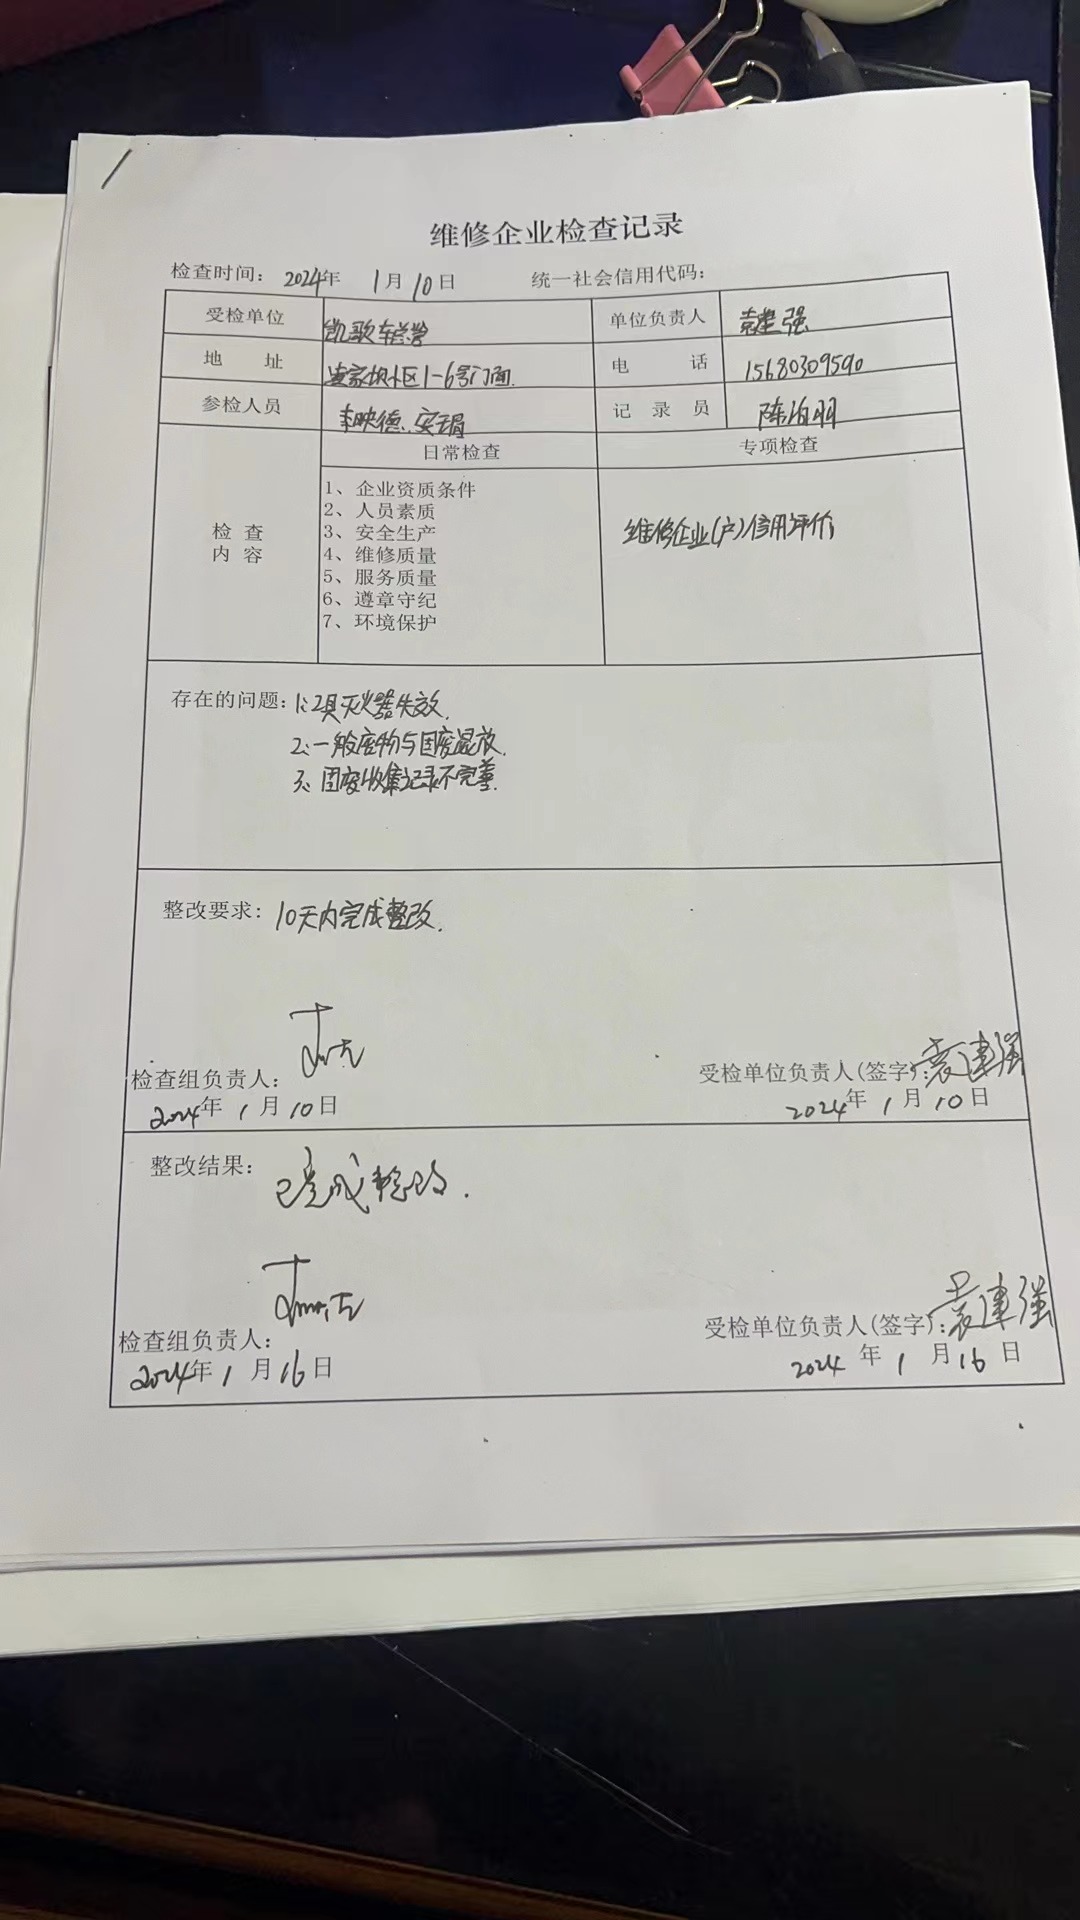 维修企业检查记录
检查时间： 2024年 1月10日 统一社会信用代码：
受检单位 凯歌车 单位负责人 袁建强
地 址 家坝小区1-6号门面. 电 话 15680309590
参检人员 李映德、安娟 记 录 员 陈泊羽
日常检查 专项检查
检 查
内 容
1、企业资质条件
2、人员素质
3、安全生产
4、维修质量
5、服务质量
6、遵章守纪
7、环境保护
维修企业(户)信用评价
存在的问题：1：2具灭火器失效.
2：一般废物与固废混放.
3、固废收集记录不完善.
整改要求：10天内完成整改.
检查组负责人： 受检单位负责人(签字)：袁建强
2024年 1月10日 2024年 1月10日
整改结果： 已完成整改.
检查组负责人： 受检单位负责人(签字)：袁建强
2024年 1月16日 2024 年 1月16日